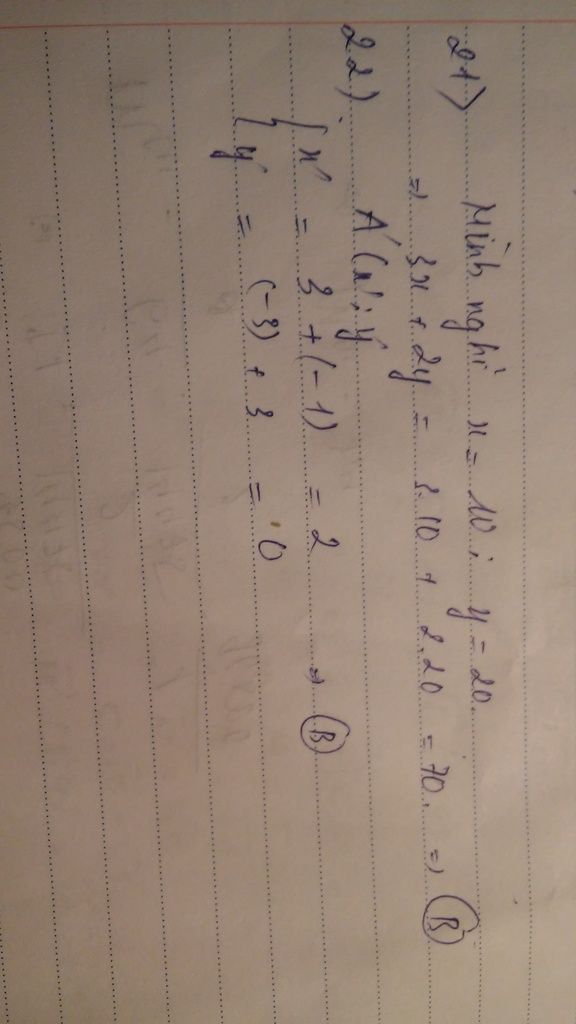 21) Mình nghĩ x = 10 ; y = 20.
=> 3x + 2y = 3.10 + 2.20 = 70. => B
22) A'(x' ; y'
{ x' = 3 + (-1) = 2 => B
{ y' = (-3) + 3 = 0